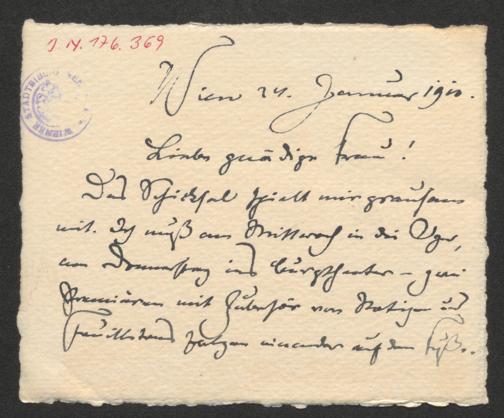 J. N. 176.369
WIENER STADTBIBLIOTHEK
Wien 24. Januar 1910.
Liebe gnädige Frau!
Das Schicksal spielt mir grausam
mit. Ich muß am Mittwoch in die Oper,
am Donnerstag ins Burgtheater – zwei
Premièren mit Zubehör von Notizen und
Feuilletons folgen einander auf dem Fuße.